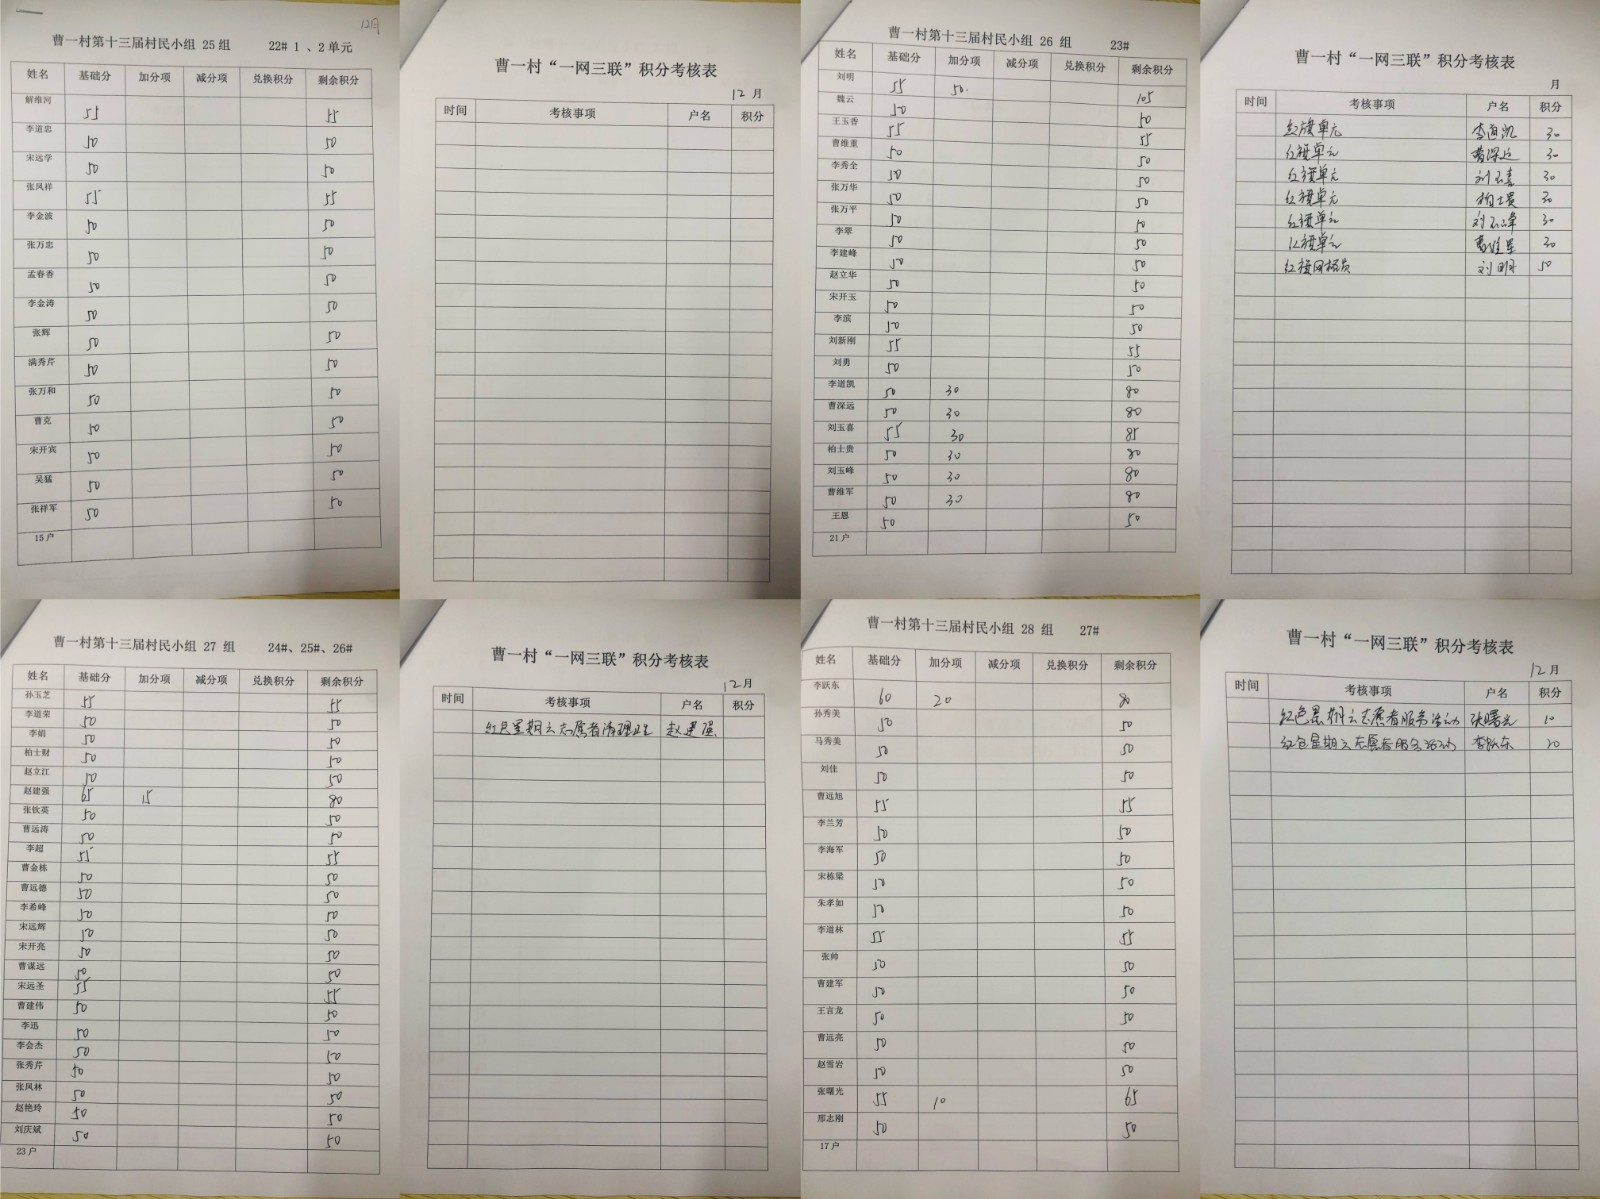 12月
曹一村第十三届村民小组 25组 22# 1 、2单元
姓名 基础分 加分项 减分项 兑换积分 剩余积分
解维河 55 55
李道忠 50 50
宋远学 50 50
张凤祥 55 55
李金波 50 50
张万忠 50 50
孟春香 50 50
李金涛 50 50
张辉 50 50
满秀芹 50 50
张万和 50 50
曹克 50 50
宋开宾 50 50
吴猛 50 50
张祥军 50 50
15户
曹一村“一网三联”积分考核表
12月
时间 考核事项 户名 积分
曹一村第十三届村民小组 26 组 23#
姓名 基础分 加分项 减分项 兑换积分 剩余积分
刘明 55 50. 105
魏云 50 50
王玉香 55 55
曹维重 50 50
李秀全 50 50
张万华 50 50
张万平 50 50
李翠 50 50
李建峰 50 50
赵立华 50 50
宋开玉 50 50
李滨 50 50
刘新刚 55 55
刘勇 50 50
李道凯 50 30 80
曹深远 50 30 80
刘玉喜 55 30 85
柏士贵 50 30 80
刘玉峰 50 30 80
曹维军 50 30 80
王恩 50 50
21户
曹一村“一网三联”积分考核表
月
时间 考核事项 户名 积分
红旗单元 李道凯 30
红旗单元 曹深远 30
红旗单元 刘玉喜 30
红旗单元 柏士贵 30
红旗单元 刘玉峰 30
红旗单元 曹维军 30
红旗网格员 刘明 50
曹一村第十三届村民小组 27 组 24#、25#、26#
姓名 基础分 加分项 减分项 兑换积分 剩余积分
孙玉芝 55 55
李道荣 50 50
李娟 50 50
柏士财 50 50
赵立江 50 50
赵建强 65 15 80
张钦英 50 50
曹远涛 50 50
李超 55 55
曹金栋 50 50
曹远德 50 50
李希峰 50 50
宋远辉 50 50
宋开亮 50 50
曹谋远 50 50
宋远圣 55 55
曹建伟 50 50
李迅 50 50
李会杰 50 50
张秀芹 50 50
张凤林 50 50
赵艳玲 50 50
刘庆斌 50 50
23户
曹一村“一网三联”积分考核表
12月
时间 考核事项 户名 积分
红色星期六志愿者清理卫生 赵建强
曹一村第十三届村民小组 28 组 27#
姓名 基础分 加分项 减分项 兑换积分 剩余积分
李跃东 60 20 80
孙秀美 50 50
马秀美 50 50
刘佳 50 50
曹远旭 55 55
李兰芳 50 50
李海军 50 50
宋栋梁 50 50
朱孝如 50 50
李道林 55 55
张帅 50 50
曹建军 50 50
王言龙 50 50
曹远亮 50 50
赵雪岩 50 50
张曙光 55 10 65
邢志刚 50 50
17户
曹一村“一网三联”积分考核表
12月
时间 考核事项 户名 积分
红色星期六志愿者服务活动 张曙光 10
红色星期六志愿者服务活动 李跃东 20